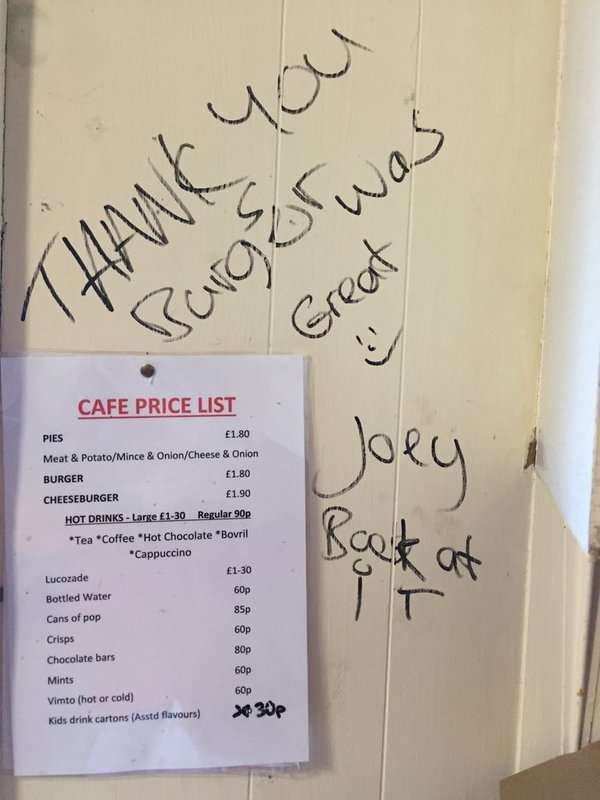 THANK YOU
Burger was
Great
Joey
Back at
iT
CAFE PRICE LIST
PIES £1.80
Meat & Potato/Mince & Onion/Cheese & Onion
BURGER £1.80
CHEESEBURGER £1.90
HOT DRINKS - Large £1-30 Regular 90p
*Tea *Coffee *Hot Chocolate *Bovril
*Cappuccino
Lucozade £1-30
Bottled Water 60p
Cans of pop 85p
Crisps 60p
Chocolate bars 80p
Mints 60p
Vimto (hot or cold) 60p
Kids drink cartons (Asstd flavours) 30p